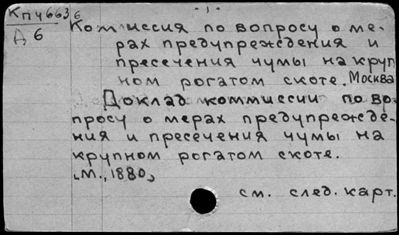 Кпч663б
Д 6
Комиссия по вопросу о ме-
рах предупреждения и
пресечения чумы на круп
ном рогатом скоте. Москва
Доклад коммиссии по во-
просу о мерах предупрежде-
ния и пресечения чумы на
крупном рогатом скоте.
М., 1880,
см. след. карт.